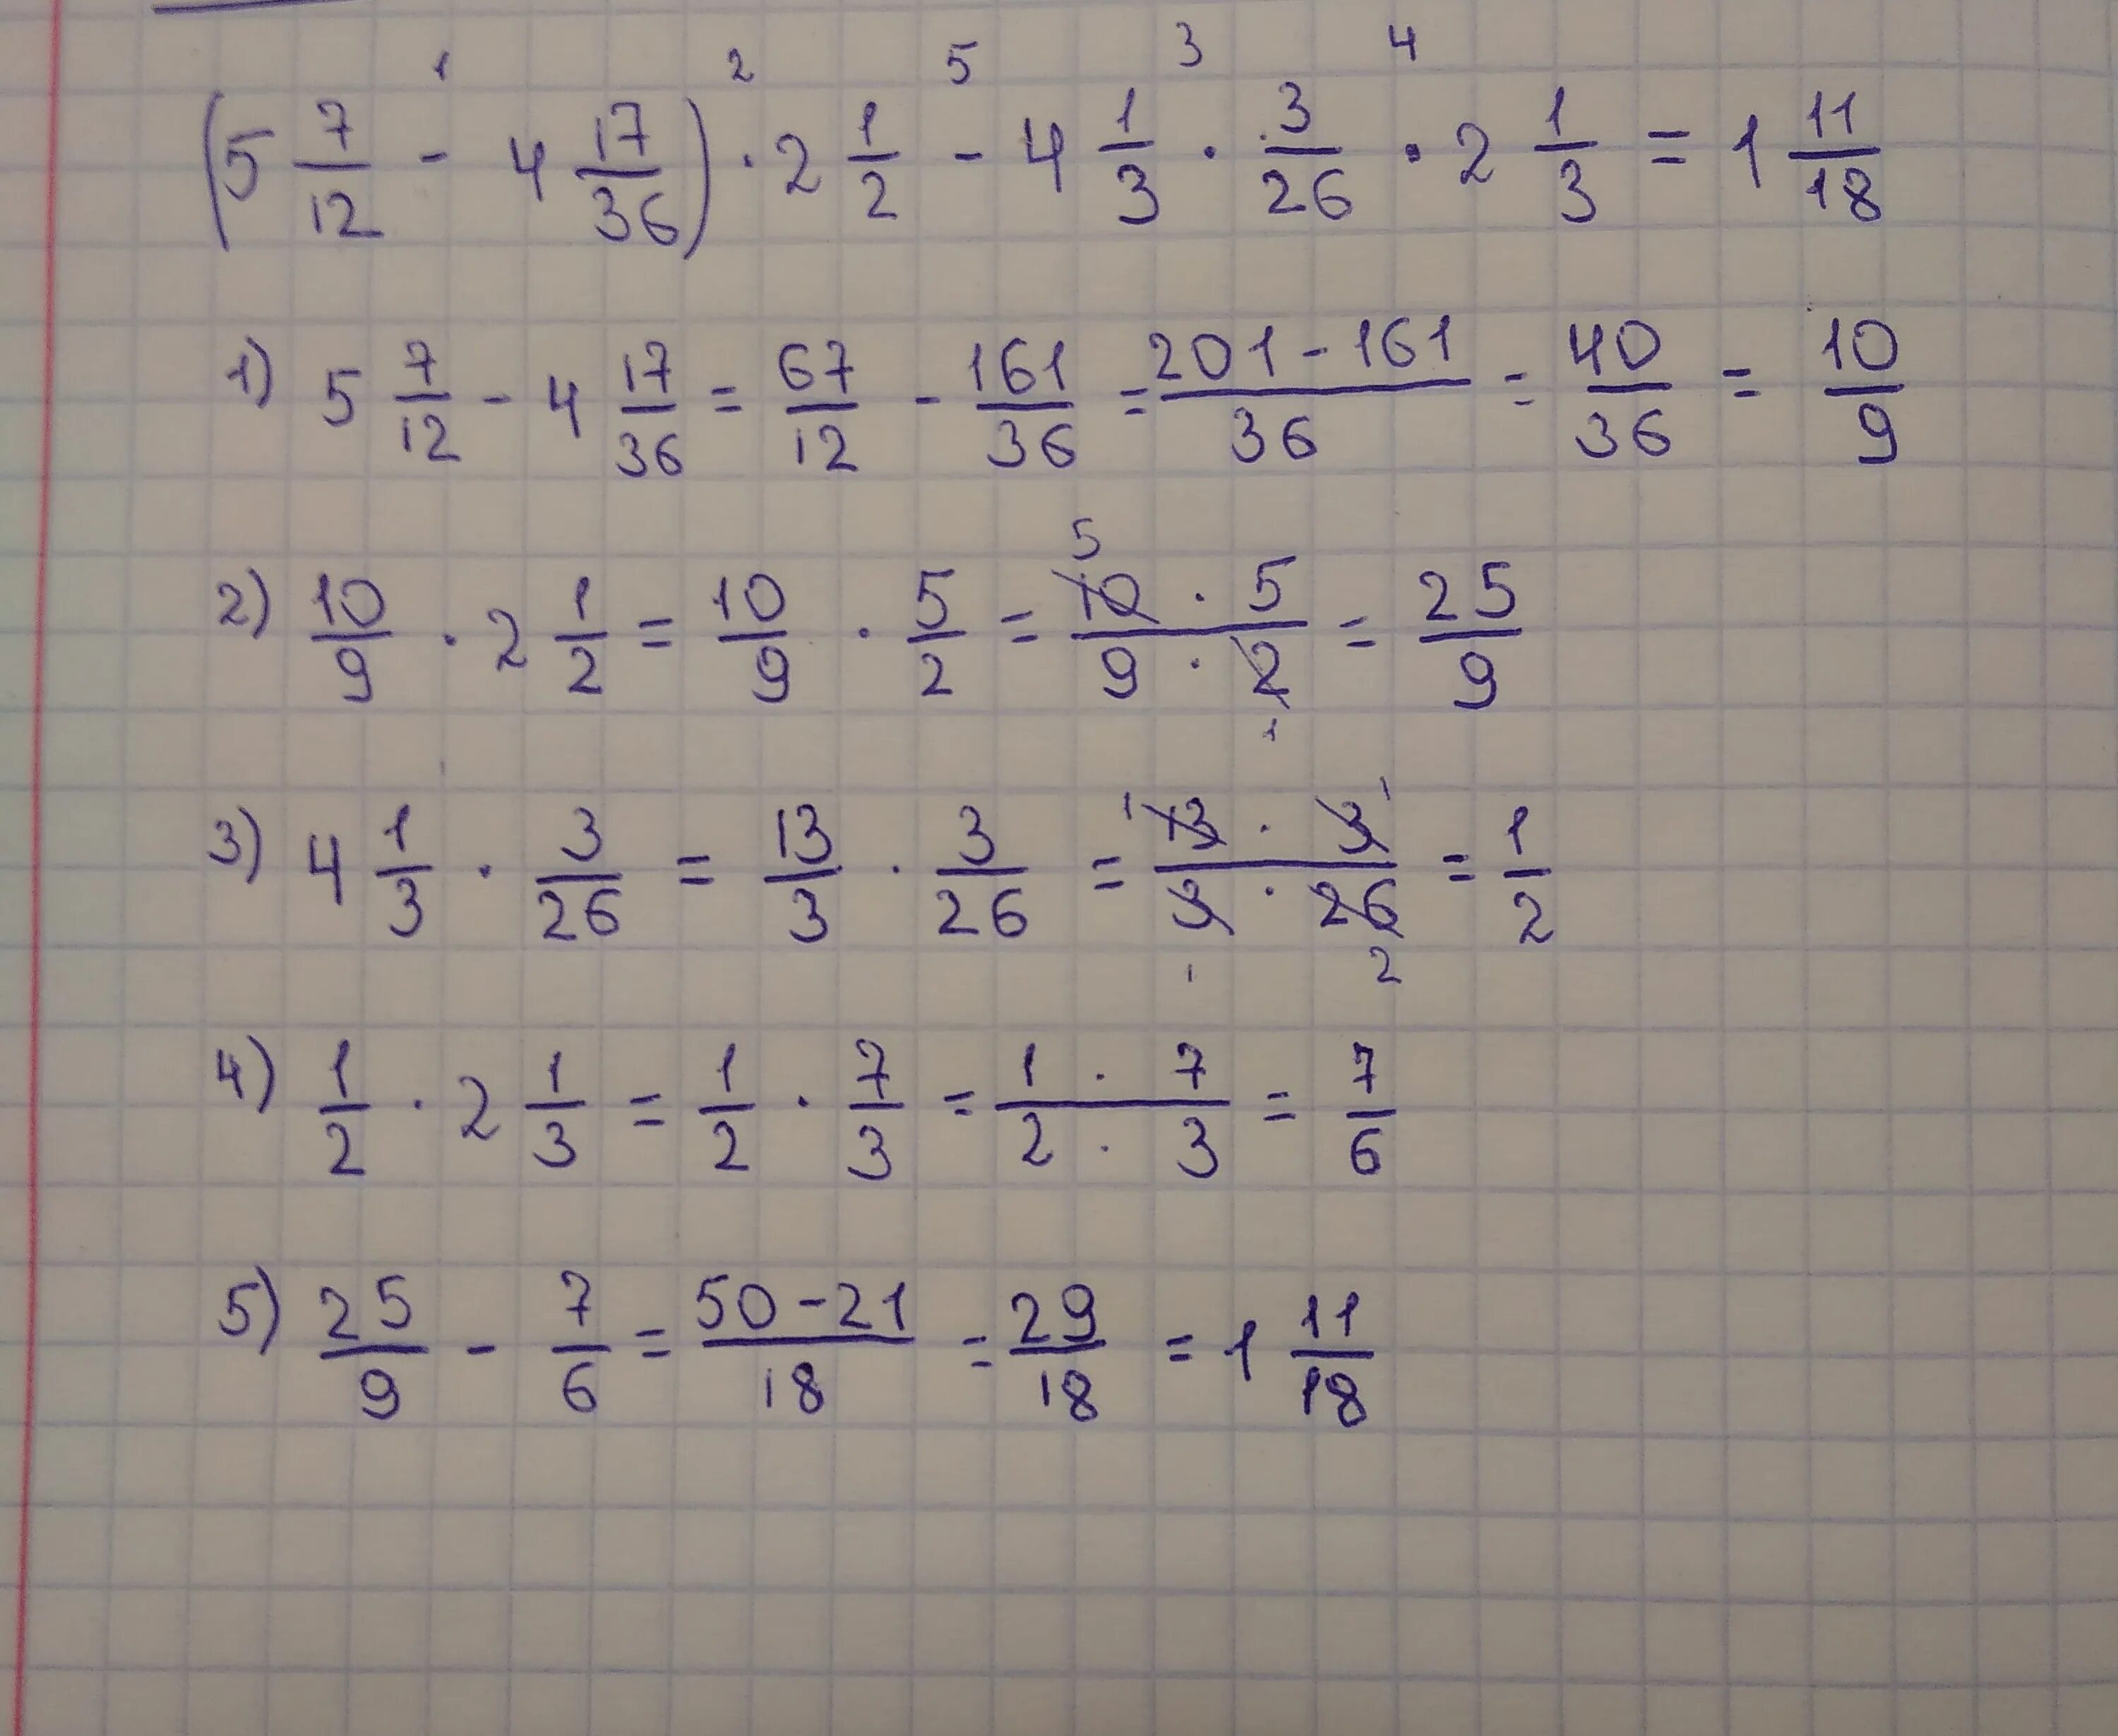 1 2 5 3 4
(5 7/12 - 4 17/36) · 2 1/2 - 4 1/3 · 3/26 · 2 1/3 = 1 11/18
1) 5 7/12 - 4 17/36 = 67/12 - 161/36 = (201-161)/36 = 40/36 = 10/9
5
2) 10/9 · 2 1/2 = 10/9 · 5/2 = (10 · 5)/(9 · 2) = 25/9
1
1 1
3) 4 1/3 · 3/26 = 13/3 · 3/26 = (13 · 3)/(3 · 26) = 1/2
1 2
4) 1/2 · 2 1/3 = 1/2 · 7/3 = (1 · 7)/(2 · 3) = 7/6
5) 25/9 - 7/6 = (50-21)/18 = 29/18 = 1 11/18